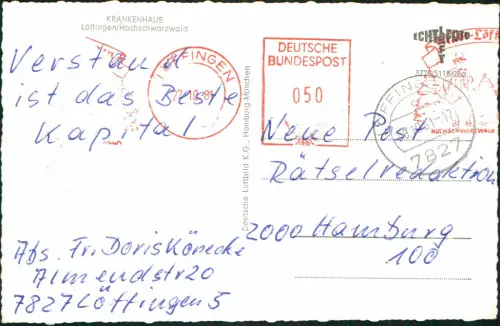 KRANKENHAUS
Löffingen/Hochschwarzwald
Verstand
ist das Beste
Kapital
LÖFFINGEN
DEUTSCHE
BUNDESPOST
050
Deutsche Luftbild K.G., Hamburg-München
HOCHSCHWARZWALD
7827
Neue Post
Rätselredaktion
2000 Hamburg
100
Abs. Fr. Doris Könecke
Almendstr 20
7827 Löffingen 5